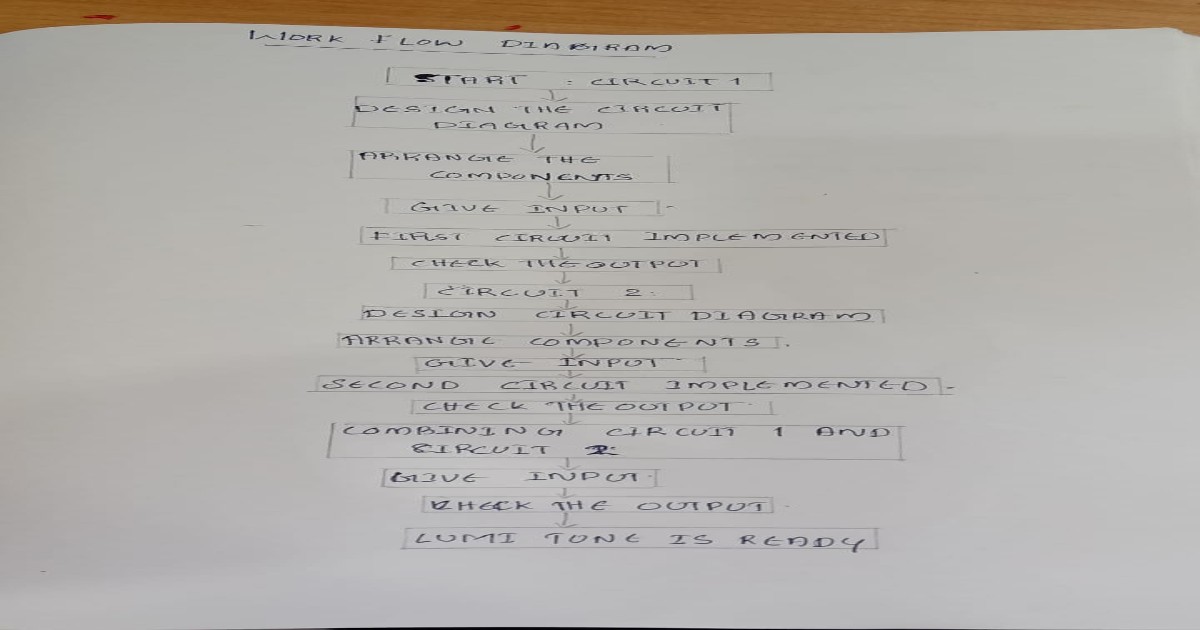 WORK FLOW DIAGRAM
START : CIRCUIT 1
DESIGN THE CIRCUIT
DIAGRAM
ARRANGE THE
COMPONENTS
GIVE INPUT
FIRST CIRCUIT IMPLEMENTED
CHECK THE OUTPUT
CIRCUIT 2:
DESIGN CIRCUIT DIAGRAM
ARRANGE COMPONENTS.
GIVE INPUT
SECOND CIRCUIT IMPLEMENTED
CHECK THE OUTPUT
COMBINING CIRCUIT 1 AND
CIRCUIT 2:
GIVE INPUT
CHECK THE OUTPUT
LUMI TONE IS READY